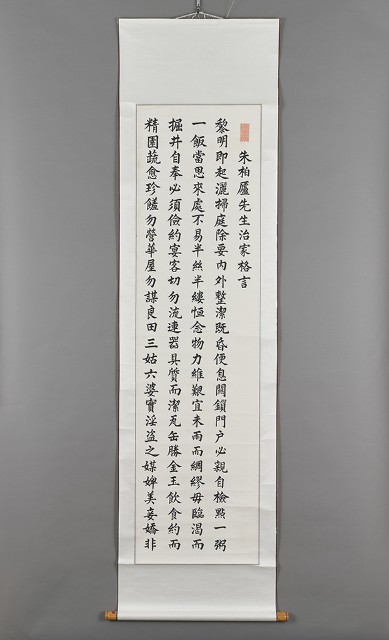 朱柏廬先生治家格言
黎明即起灑掃庭除要內外整潔既昏便息關鎖門戶必親自檢點一粥
一飯當思來處不易半絲半縷恆念物力維艱宜未雨而綢繆毋臨渴而
掘井自奉必須儉約宴客切勿流連器具質而潔瓦缶勝金玉飲食約而
精園蔬愈珍饈勿營華屋勿謀良田三姑六婆實淫盜之媒婢美妾嬌非